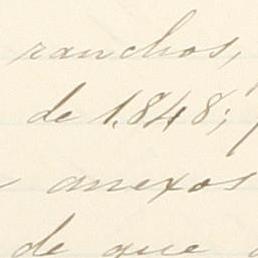 ranchos,
de 1.848;
anexos
de que